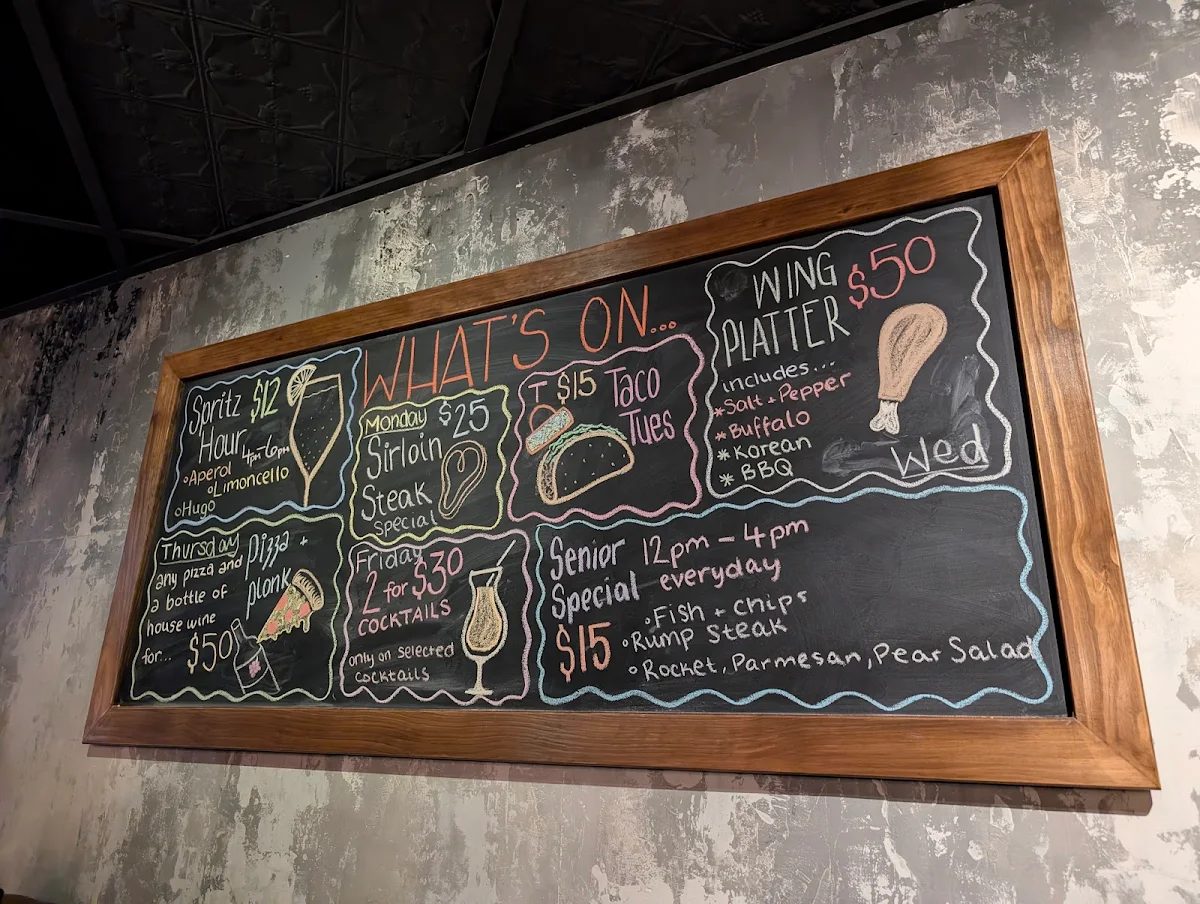 WHAT'S ON...
Spritz $12
Hour 4pm-6pm
Aperol
Limoncello
Hugo
Monday $25
Sirloin
Steak
Special
T $15 Taco
Tues
WING $50
PLATTER
includes...
* Salt + Pepper
* Buffalo
* Korean
* BBQ
Wed
Thursday pizza +
plonk
any pizza and
a bottle of
house wine
for... $50
Friday
2 for $30
COCKTAILS
only on selected
cocktails
Senior 12pm - 4pm
Special everyday
$15
Fish + chips
Rump Steak
Rocket, Parmesan, Pear Salad